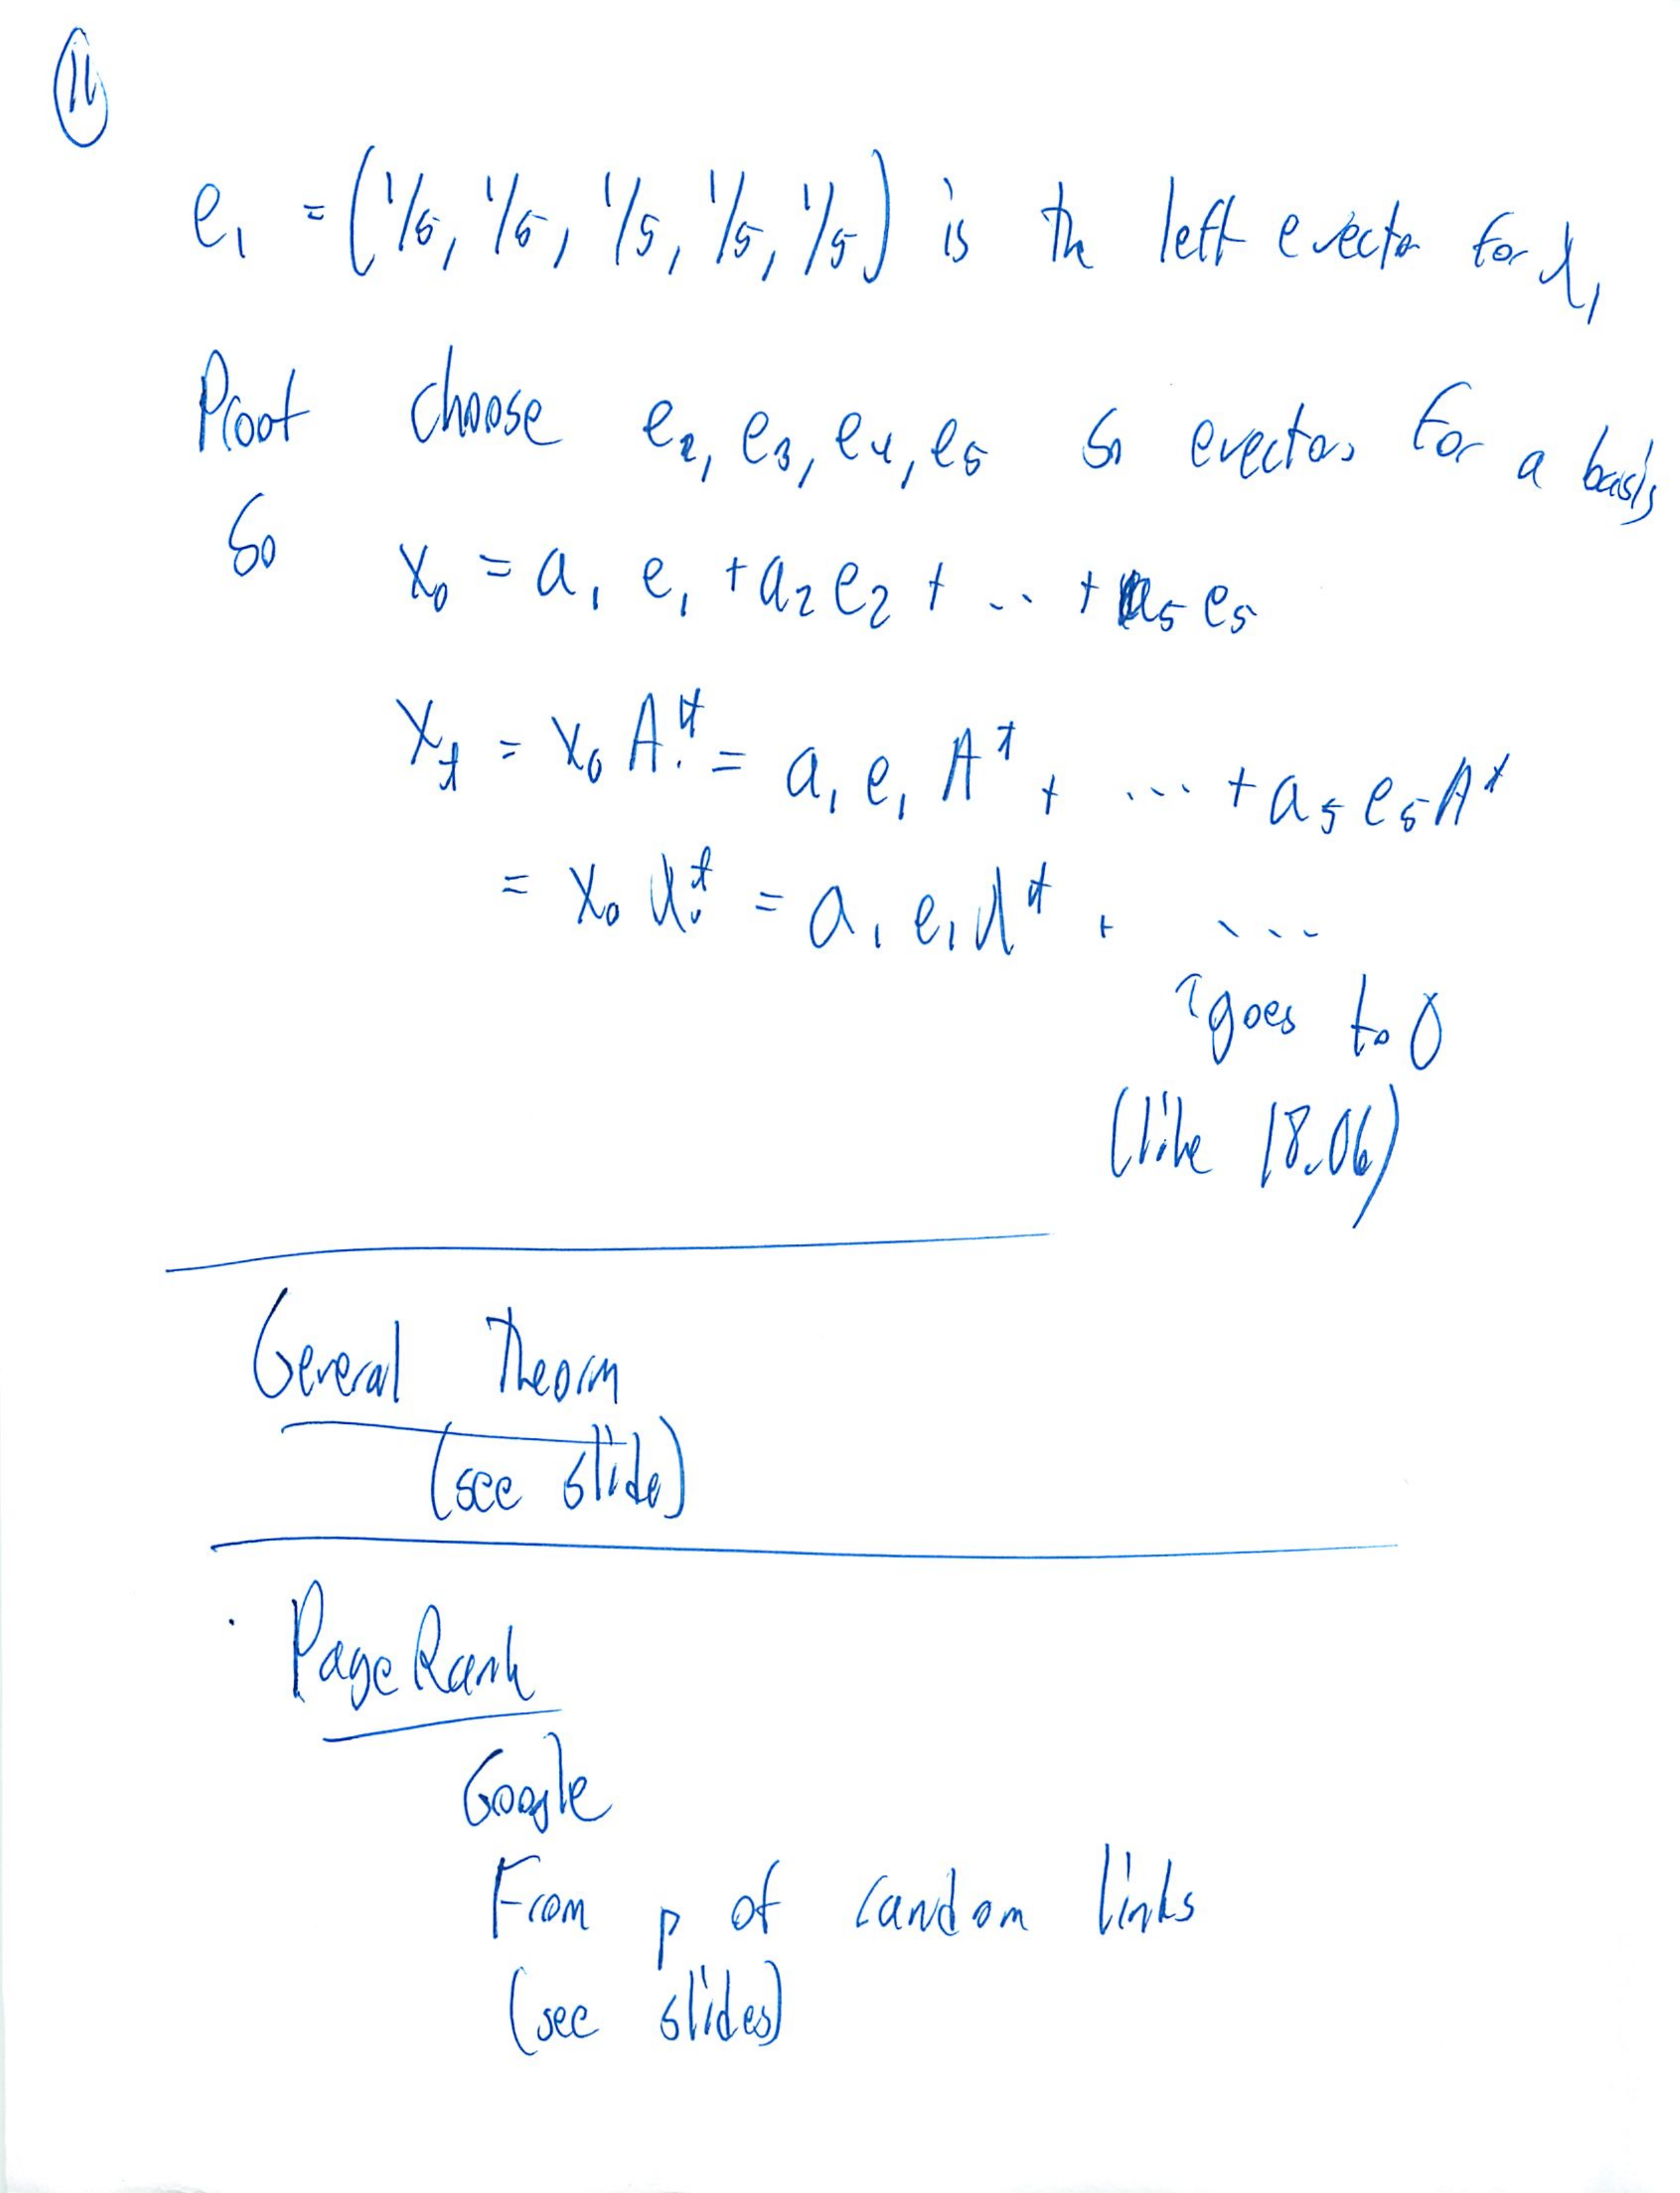 11
e₁ = (1/5, 1/5, 1/5, 1/5, 1/5) is the left evector for λ₁
Proof choose e₂, e₃, e₄, e₅ so evectors for a basis
So x₀ = a₁ e₁ + a₂ e₂ + ... + a₅ e₅
xₜ = x₀ Aᵗ = a₁ e₁ Aᵗ + ... + a₅ e₅ Aᵗ
= x₀ λᵗ = a₁ e₁ λᵗ + ...
↑ goes to 0
(like 18.06)
General Theorm
(see slide)
PageRank
Google
From p of random links
(see slides)